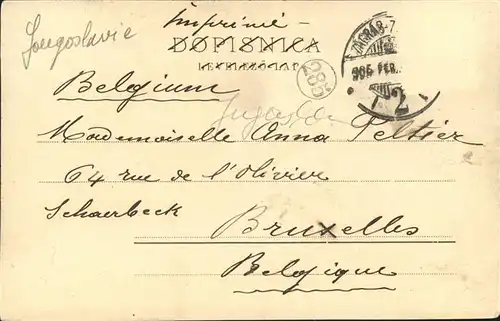 Imprimé -
Yougoslavie
DOPISNICA
ZAGRAB
905 FEB.
2
285
Belgium
Mademoiselle Anna Peltier
64 rue de l'Olivier
Schaerbeck
Bruxelles
Belgique